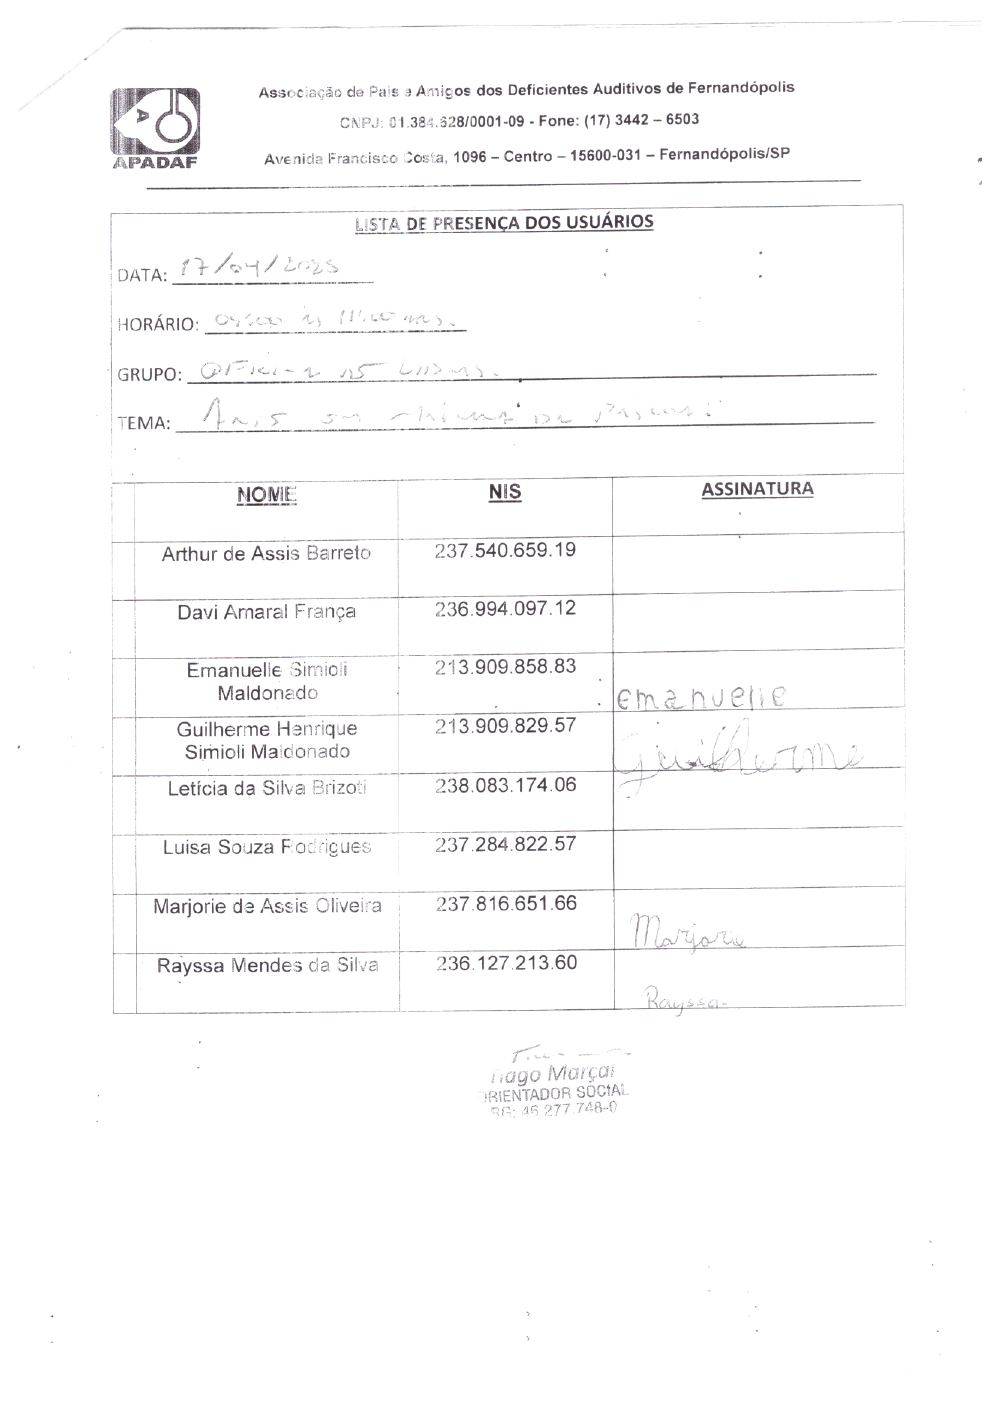 Associação de Pais e Amigos dos Deficientes Auditivos de Fernandópolis
CNPJ: 01.384.628/0001-09 - Fone: (17) 3442 – 6503
APADAF
Avenida Francisco Costa, 1096 – Centro – 15600-031 – Fernandópolis/SP
LISTA DE PRESENÇA DOS USUÁRIOS
DATA: 17/04/2025
HORÁRIO: às
GRUPO: OFICINA DE
TEMA:
NOME NIS ASSINATURA
Arthur de Assis Barreto 237.540.659.19
Davi Amaral França 236.994.097.12
Emanuelle Simioli Maldonado 213.909.858.83 Emanuelle
Guilherme Henrique Simioli Maldonado 213.909.829.57 Guilherme
Letícia da Silva Brizoti 238.083.174.06
Luisa Souza Rodrigues 237.284.822.57
Marjorie de Assis Oliveira 237.816.651.66 Marjorie
Rayssa Mendes da Silva 236.127.213.60 Rayssa
Tiago Marçal
ORIENTADOR SOCIAL
RG: 46.277.748-0